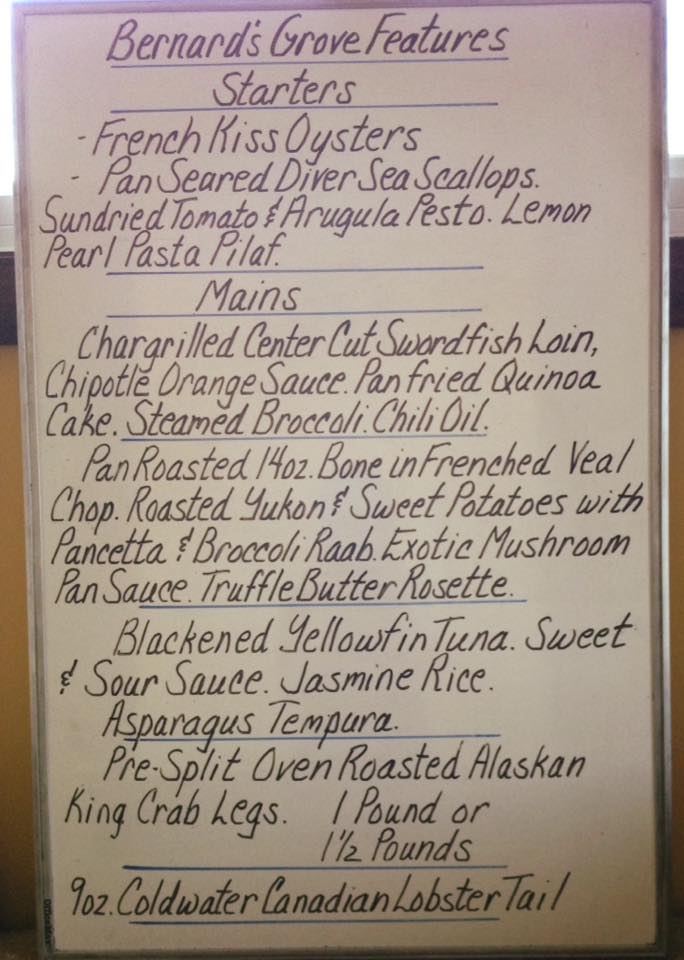 Bernard's Grove Features
Starters
- French Kiss Oysters
- Pan Seared Diver Sea Scallops.
Sundried Tomato & Arugula Pesto. Lemon
Pearl Pasta Pilaf.
Mains
Chargrilled Center Cut Swordfish Loin,
Chipotle Orange Sauce. Pan fried Quinoa
Cake. Steamed Broccoli. Chili Oil.
Pan Roasted 14oz. Bone in Frenched Veal
Chop. Roasted Yukon & Sweet Potatoes with
Pancetta & Broccoli Raab. Exotic Mushroom
Pan Sauce. Truffle Butter Rosette.
Blackened Yellowfin Tuna. Sweet
& Sour Sauce. Jasmine Rice.
Asparagus Tempura.
Pre-Split Oven Roasted Alaskan
King Crab Legs. 1 Pound or
1 1/2 Pounds
9oz. Coldwater Canadian Lobster Tail
OfficeMax